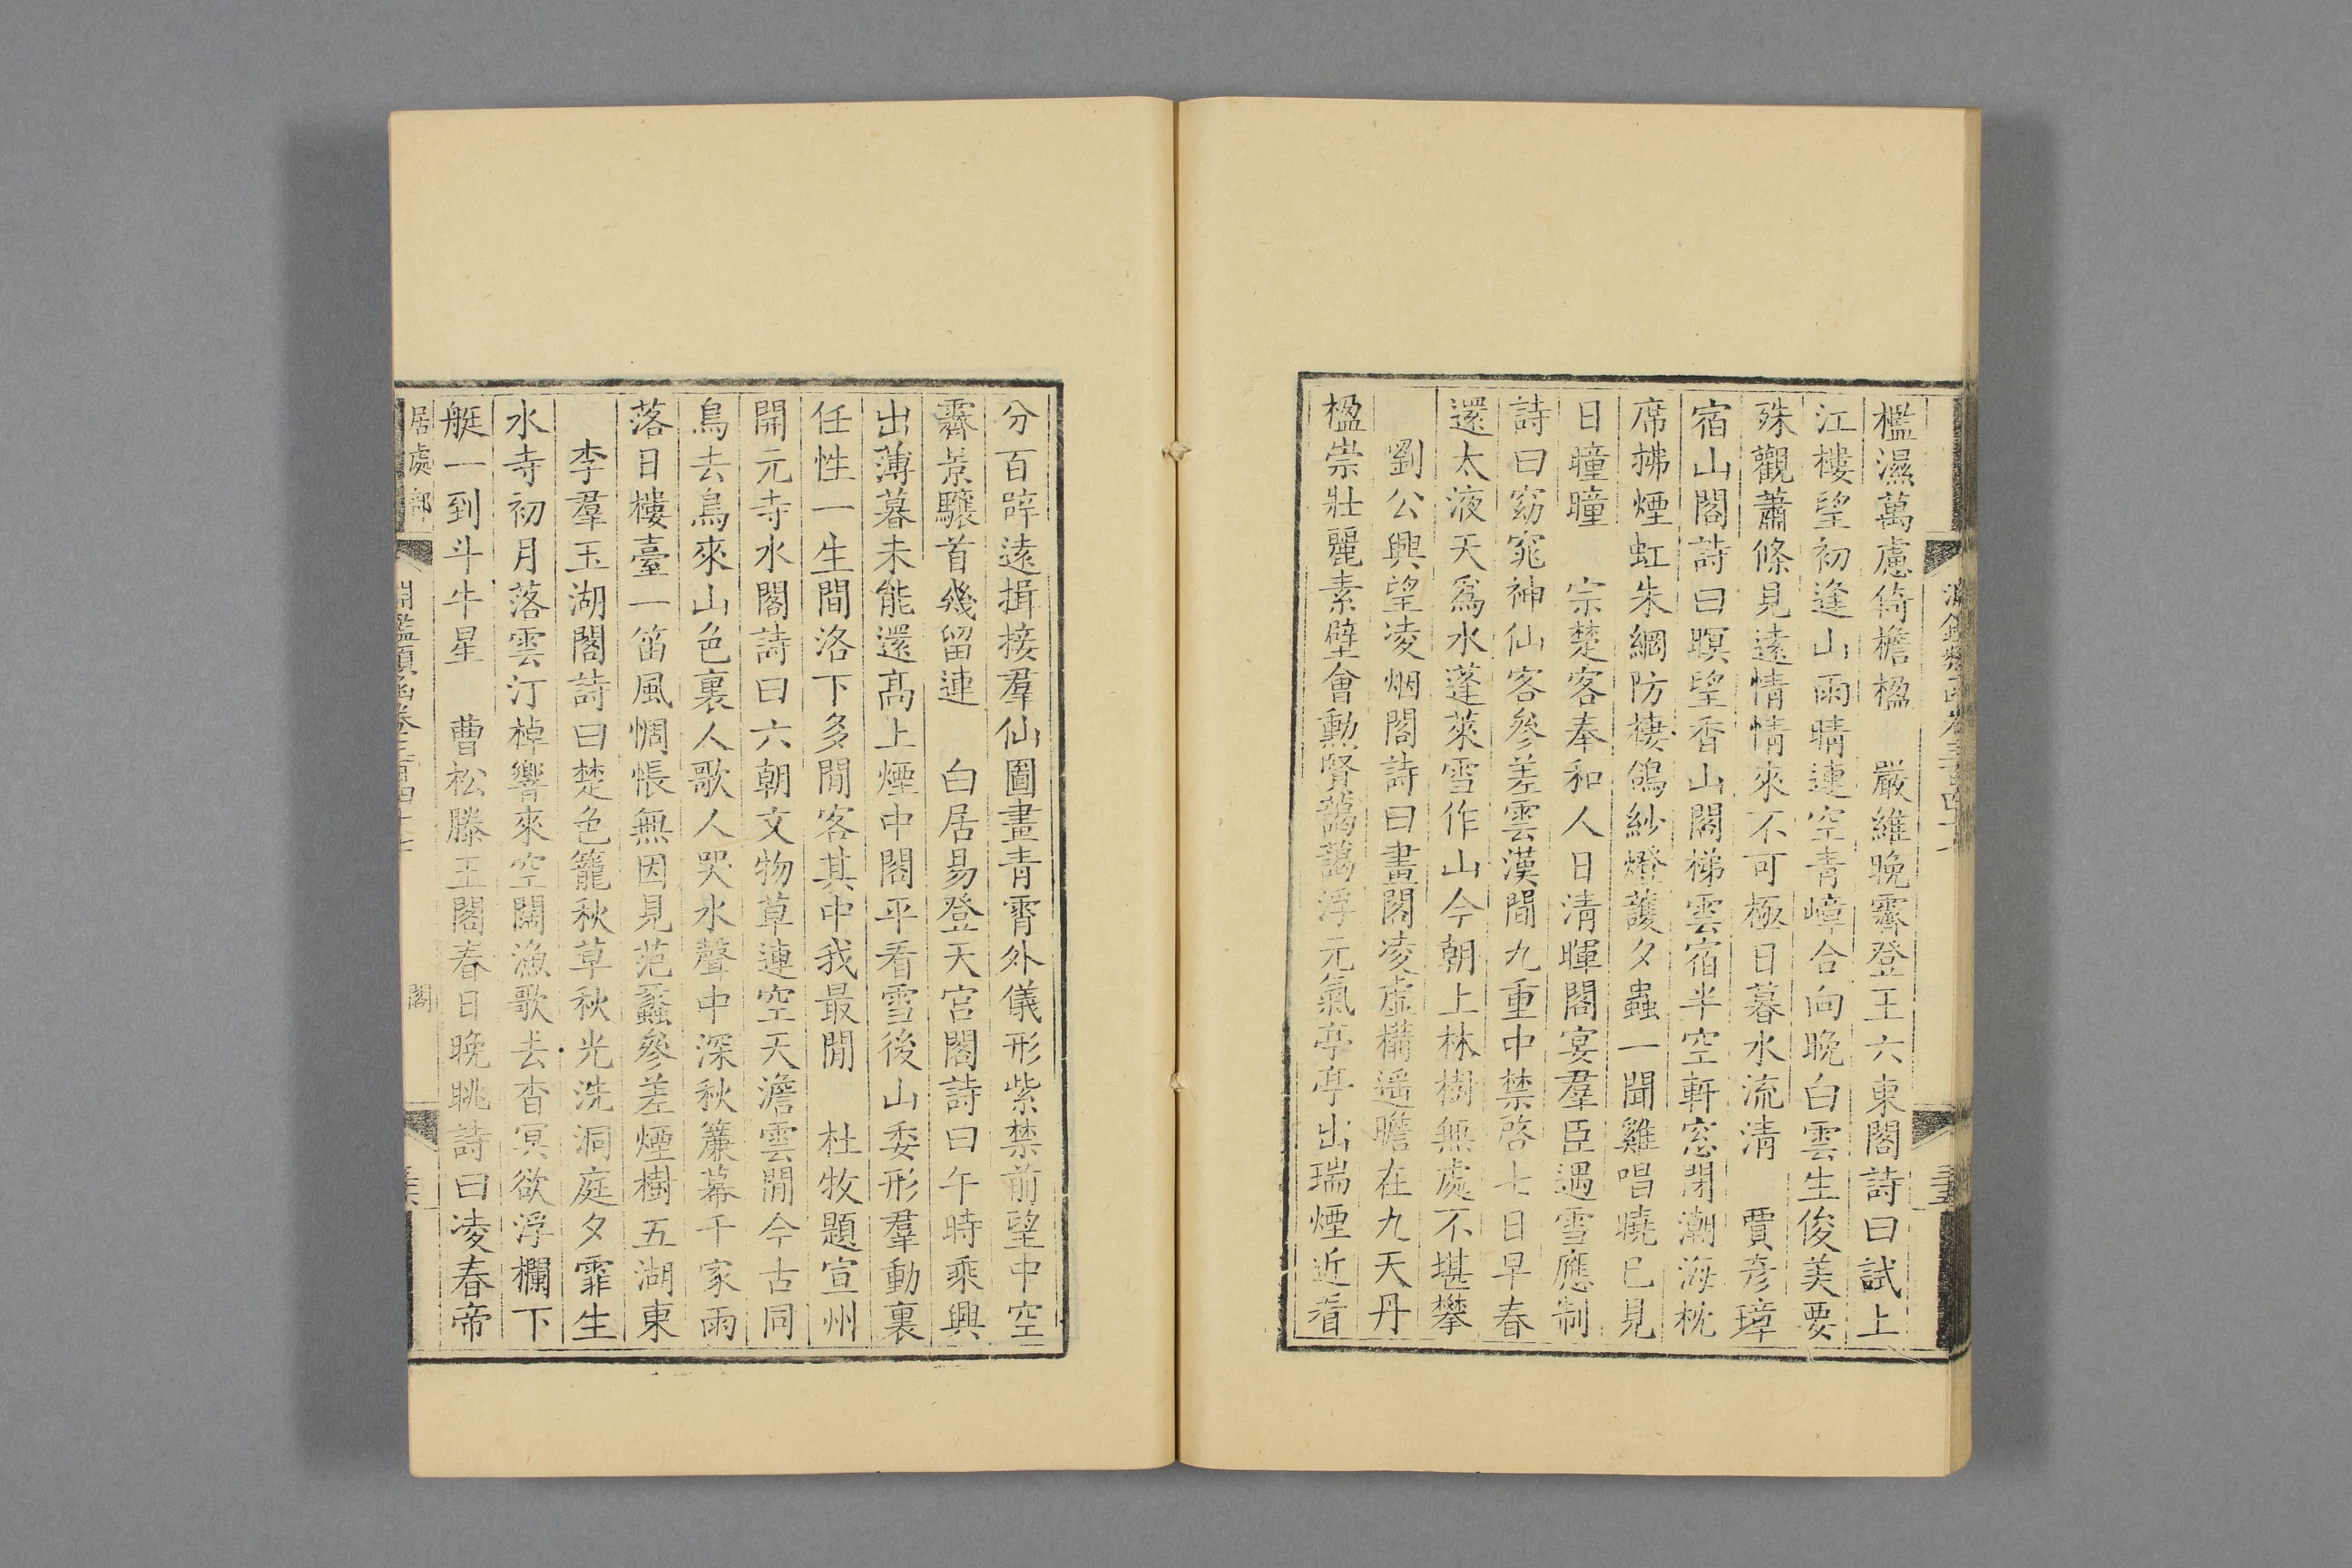 檻濕萬慮倚檐楹　嚴維晚霽登王六東閣詩曰試上
江樓望初逢山雨晴連空青嶂合向晚白雲生俊美要
殊觀蕭條見遠情情來不可極日暮水流清　賈彥璋
宿山閣詩曰暝望香山閣梯雲宿半空軒窓閉潮海枕
席拂煙虹朱網防棲鴿紗燈護夕蟲一聞雞唱曉已見
日曈曈　宗楚客奉和人日清暉閣宴羣臣遇雪應制
詩曰窈窕神仙客參差雲漢間九重中禁啓七日早春
還太液天爲水蓬萊雪作山今朝上林樹無處不堪攀
劉公興望凌烟閣詩曰畫閣凌虛構遥瞻在九天丹
楹崇壯麗素壁會勳賢藹藹浮元氣亭亭出瑞煙近看
分百辟遠揖接羣仙圖畫青霄外儀形紫禁前望中空
霽景驤首幾留連　白居易登天宫閣詩曰午時乘興
出薄暮未能還高上煙中閣平看雪後山委形羣動裏
任性一生間洛下多閒客其中我最閒　杜牧題宣州
開元寺水閣詩曰六朝文物草連空天澹雲閒今古同
鳥去鳥來山色裏人歌人哭水聲中深秋簾幕千家雨
落日樓臺一笛風惆悵無因見范蠡參差煙樹五湖東
李羣玉湖閣詩曰楚色籠秋草秋光洗洞庭夕霏生
水寺初月落雲汀棹響來空闊漁歌去杳冥欲浮欄下
艇一到斗牛星　曹松滕王閣春日晚眺詩曰凌春帝
居處部
淵鑑類函卷三百四十七
閣